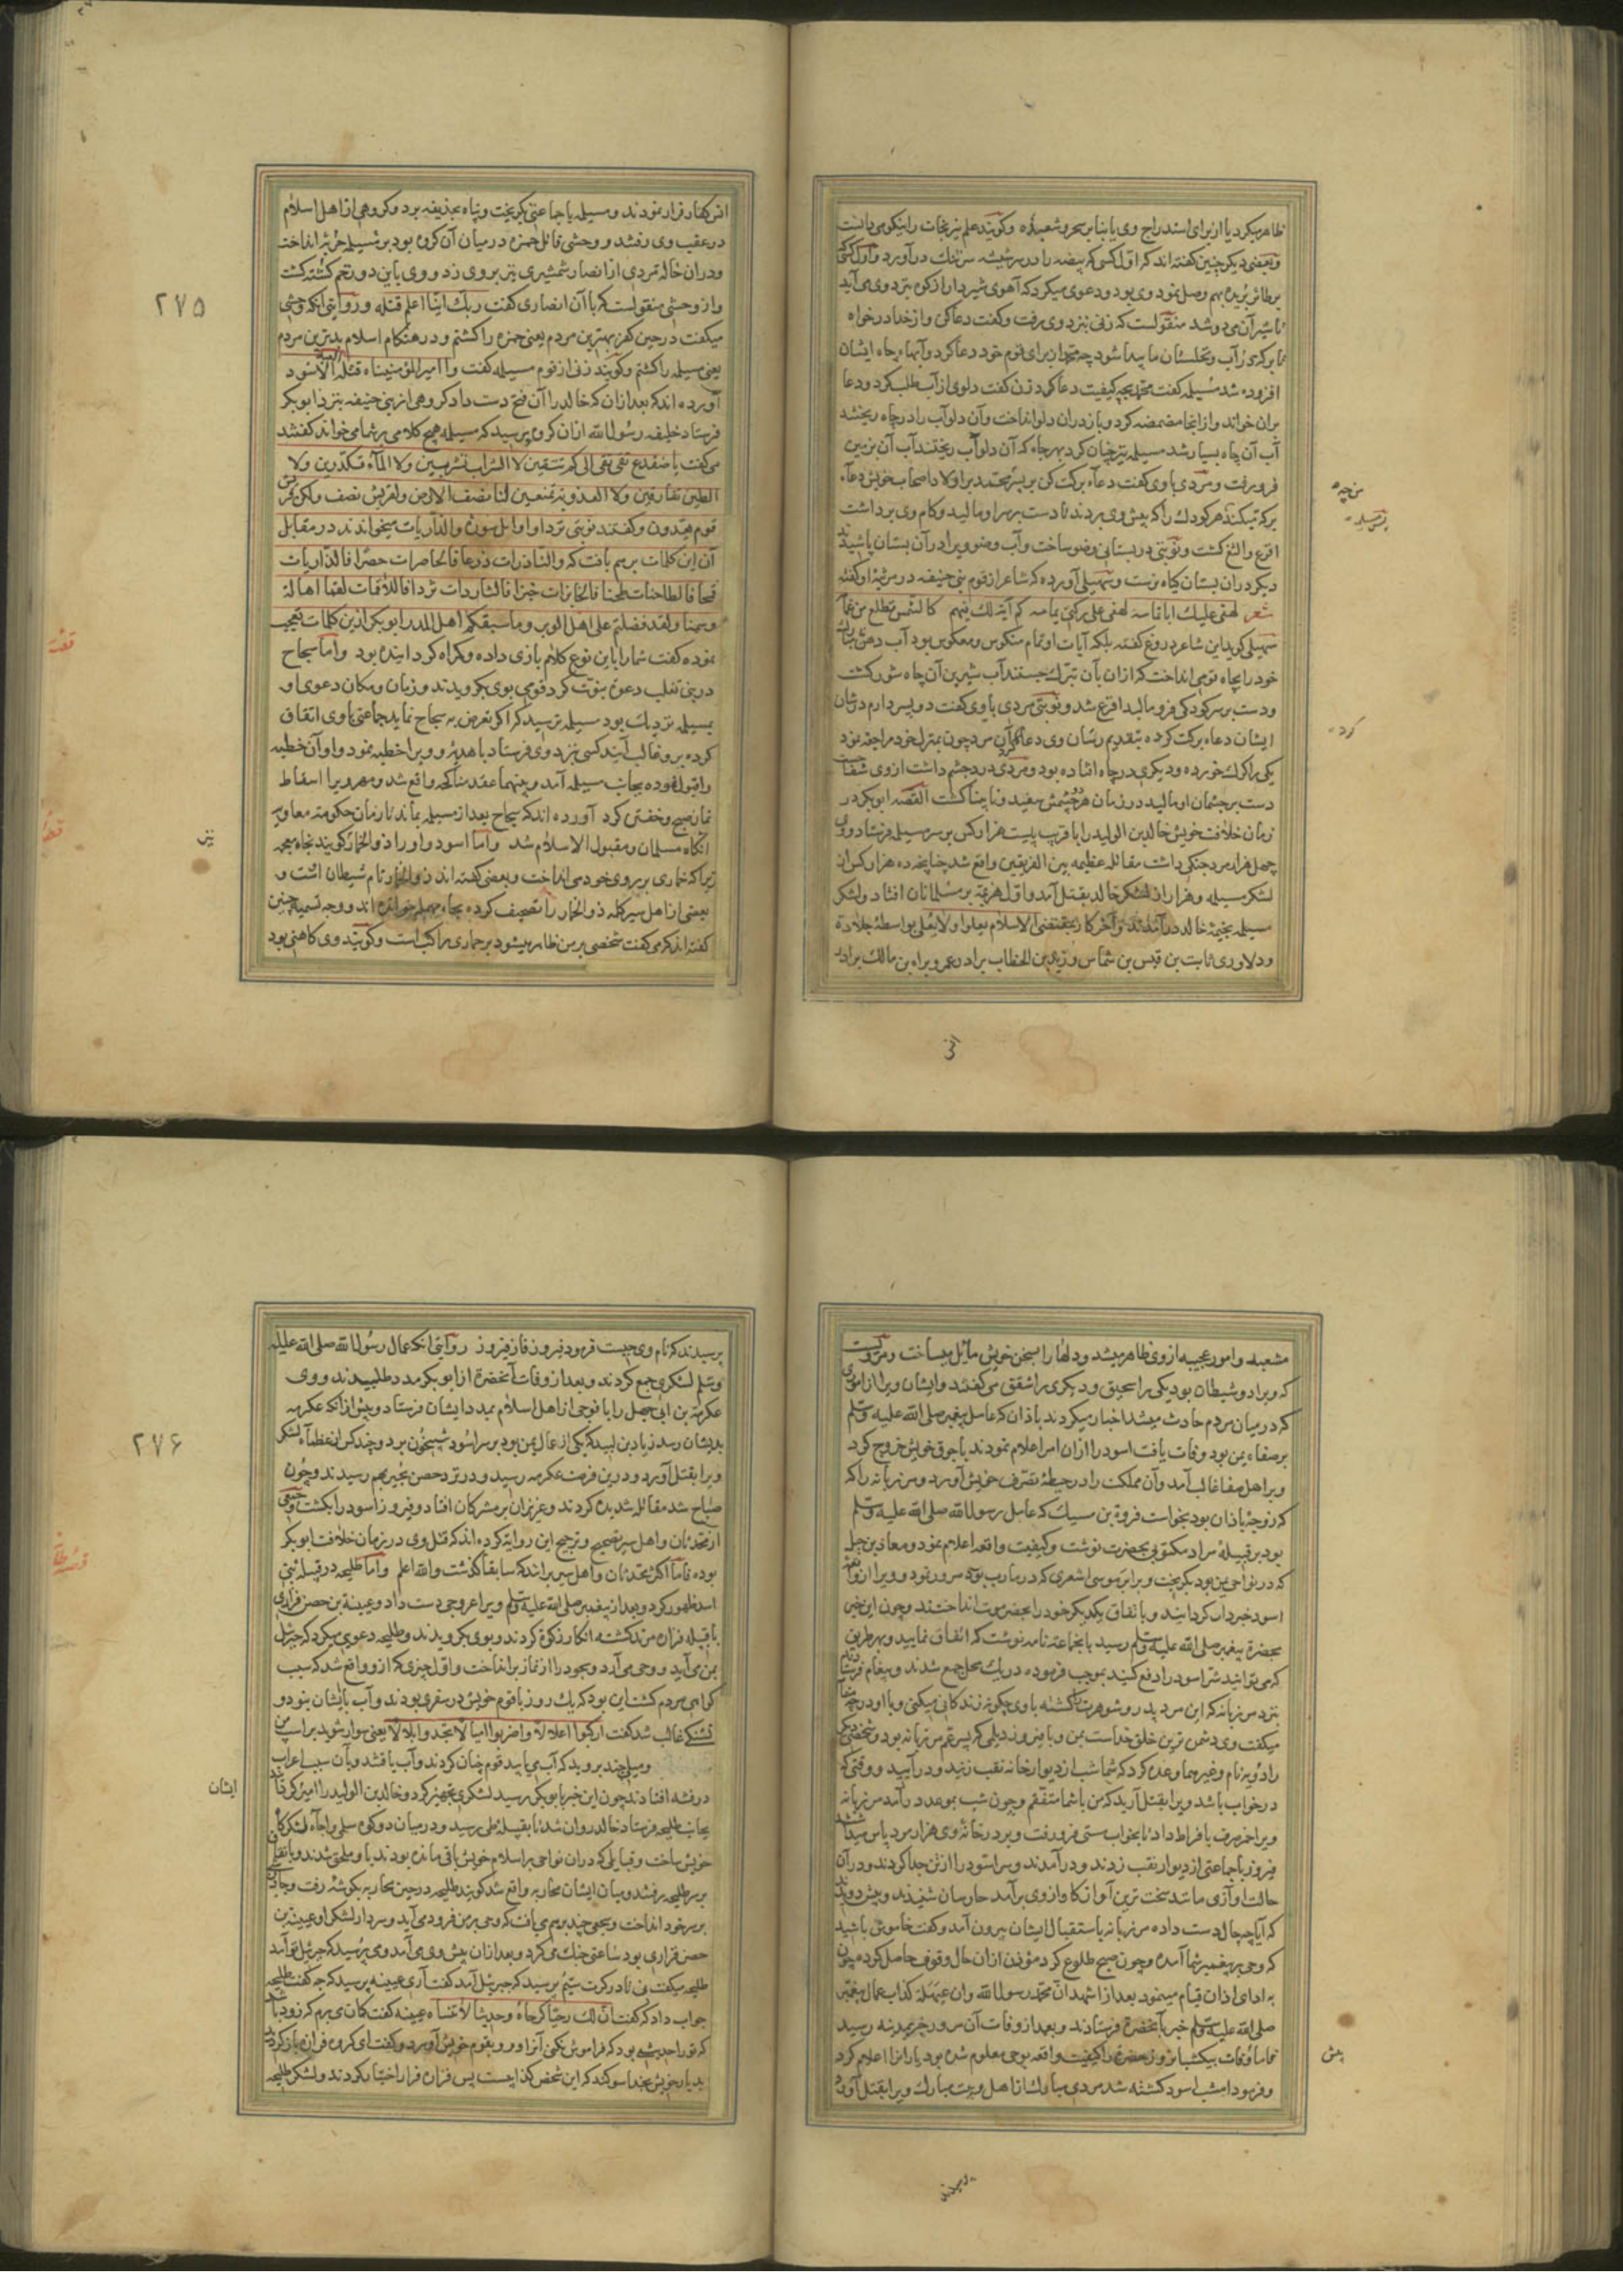 ظاهر میکرد یا از برای استدراج وی یا بنابر سحر و شعبده و کویند علم نیرنجات را نیکو می دانست
و بعضی دیکر چنین کفته اند که اول کسی که بیضه را در شیشه سر تنک در آورد و اول کسی که
بر طائر بریده بهم وصل نمود وی بود و دعوی میکرد که آهوی شیردار از کوه نزد وی می آید
تا شیر آن می دوشد منقولست که زنی نزد وی رفت و کفت دعا کن و از خدا در خواه
تا برکه در آب و نخلستان ما پیدا شود چه محمد از برای قوم خود دعا کرد و آبهاء چاه ایشان
افزوده شد مسیلمه کفت محمد بچه کیفیت دعا کرد زن کفت دلوی از آب طلب کرد و دعا
بران خواند و از انجا مضمضه کرد و باز در ان دلو انداخت و آن دلو آب را در چاه ریختند
آب آن چاه بسیار شد مسیلمه نیز چنان کرد بهر چاه که آن دلو آب ریختند آب آن بزمین
فرو رفت و مردی با وی کفت دعاء برکت کن بر پسر محمد بر اولاد اصحاب خویش دعاء
برکه میکند هر کودک را که پیش وی بردند تا دست بر سر او مالید و کام وی برداشت
اقرع و الثغ کشت و نوبتی در بستانی وضو ساخت و آب وضوء ویرا در آن بستان پاشیدند
دیکر در ان بستان کیاه نرست و سهیلی آورده که شاعر از قوم بنی حنیفه در مرثیه او کفته
شعر لهفی علیک ابا ثمامه لهفی علی رکنی یمامه کم آیة لک فیهم کالشمس تطلع من غمامه
سهیلی کوید این شاعر دروغ کفته بلکه آیات او تمام منکوس و معکوس بود آب دهن
خود را بچاه قومی انداخت که از ان بآن تبرک جستند آب شیرین آن چاه شور کشت
و دست بر سر کودکی فرو مالید اقرع شد و نوبتی مردی با وی کفت دو پسر دارم در شان
ایشان دعاء برکت کرده بتقدیم رسان وی دعا کرد آن مرد چون بمنزل خود مراجعه نمود
یکی را کرک خورده و دیکری در چاه افتاده بود و مردی درد چشم داشت از وی شفا جست
دست بر چشمان او مالید در زمان هر دو چشمش سفید و نابینا کشت القصه ابو بکر در
زمان خلافت خویش خالد بن الولید را با قریب بیست هزار کس بر سر مسیلمه فرستاد و وی
چهل هزار مرد جنکی داشت مقاتله عظیمه بین الفریقین واقع شد چنانچه ده هزار کس از
لشکر مسیلمه و هزار از لشکر خالد بقتل آمد و اول هزیمه بر مسلمانان افتاد و لشکر
مسیلمه بخیمه خالد در آمدند و آخر کار بمقتضی الاسلام یعلو و لا یعلی بواسطه جلادة
و دلاوری ثابت بن قیس بن شماس و زید بن الخطاب برادر عمر و براء بن مالک برادر
کرد
انس
انس کفار فرار نمودند و مسیلمه با جماعتی کریخت و پناه بحدیقه برد و کروهی از اهل اسلام
در عقب وی رفتند و وحشی قاتل حمزه در میان آن کروه بود بر مسیلمه حربه انداخت
و در ان حاله مردی از انصار شمشیری نیز بروی زد و وی باین دو زخم کشته کشت
و از وحشی منقولست که با آن انصاری کفت ربک اینا اعلم قتله و روایتی انکه وحشی
میکفت در حین کفر بهترین مردم یعنی حمزه را کشتم و در هنکام اسلام بدترین مردم
یعنی مسیلمه را کشتم و کویند زنی از قوم مسیلمه کفت وا امیر المؤمنیناه قتله العبد الاسود
آورده اند که بعد از ان که خالد را آن فتح دست داد کروهی از بنی حنیفه بنزد ابو بکر
فرستاد خلیفه رسول الله از ان کروه پرسید که مسیلمه هیچ کلامی بر شما می خواند کفتند
می کفت یا ضفدع نقی نقی الی کم تنقین لا الشراب تشربین و لا الماء تکدرین و لا
الطین تفارقین و لا العذوبة تمنعین لنا نصف الارض و لقریش نصف و لکن قریش
قوم یعتدون و کفتند نوبتی نزد او اوائل سوره و الذاریات میخواندند در مقابل
آن این کلمات برهم بافت که و الباذرات ذرعا فالحاصرات حصرا فالذاریات
قمحا فالطاحنات طحنا فالخابزات خبزا فالثاردات ثردا فاللاقمات لقما اهالة
و سمنا و لقد فضلتم علی اهل الوبر و ما سبقکم اهل المدر ابو بکر از ین کلمات تعجب
نموده کفت شما را باین نوع کلام بازی داده و کمراه کردانیده بود و اما سجاح
در بنی تغلب دعوه نبوت کرد قومی بوی بکرویدند و زمان و مکان دعوی او
بمسیلمه نزدیک بود مسیلمه ترسید که اکر تعرض به سجاح نماید جماعتی با وی اتفاق
کرده برو غالب آیند کسی نزد وی فرستاد با هدیه و ویرا خطبه نمود و او آن خطبه
را قبول نموده بجانب مسیلمه آمد و بینهما عقد مناکحه واقع شد و مهر ویرا اسقاط
نماز صبح و خفتن کرد آورده اند که سجاح بعد از مسیلمه بماند تا زمان حکومة معاویه
انکاه مسلمان و مقبول الاسلام شد و اما اسود و او را ذو الخمار کویند بخاء معجمه
زیرا که خماری بر روی خود می انداخت و بعضی کفته اند ذو الخمار نام شیطان اوست و
بعضی از اهل سیر کلمه ذو الخمار را تصحیف کرده بحاء مهمله خوانده اند و وجه تسمیه چنین
کفته اند که می کفت شخصی بر من ظاهر میشود بر حماری راکب است و کویند وی کاهنی بود
۲۷۵
مشعبد و امور عجیبه از وی ظاهر میشد و دلها را بسخن خویش مایل میساخت و مرویست
که ویرا دو شیطان بود یکی را سحیق و دیکری را شقیق می کفتند و ایشان ویرا از اموری
که در میان مردم حادث میشد اخبار میکردند باذان که عامل پیغمبر صلی الله علیه وسلم
بر صنعاء یمن بود وفات یافت اسود را از ان امر اعلام نمودند با جوق خویش خروج کرد
و بر اهل صنعا غالب آمد و آن مملکت را در حیطه تصرف خویش آورد و مرزبانه را که
که زوجه باذان بود بخواست فروة بن مسیک که عامل رسول الله صلی الله علیه وسلم
بود بر قبیله مراد مکتوبی بحضرت نوشت و کیفیت واقعه اعلام نمود و معاذ بن جبل
که در نواحی یمن بود بکریخت و بر ابو موسی اشعری که در مارب بود مرور نمود و ویرا از واقعه
اسود خبردار کردانید و باتفاق یکدیکر خود را بحضرموت انداختند و چون این خبر
بحضرة پیغمبر صلی الله علیه وسلم رسید بانجماعة نامه نوشت که اتفاق نمایید و بهر طریق
که می توانید شر اسود را دفع کنید بموجب فرموده در یک محل جمع شدند و پیغام فرستادند
نزد مرزبانه که این مرد پدر و شوهرت را کشته با وی چکونه زندکانی میکنی و با او در چه مقامی
میکفت وی دشمن ترین خلق خداست بمن و با فیروز دیلمی که پسر عم مرزبانه بود و شخصی دیکر
دادویه نام وغیرهما وعده کرد که شما شب از دیوار خانه نقب زنید و در آیید و وقتی که
در خواب باشد ویرا بقتل آرید که من با شما متفقم و چون شب موعد در آمد مرزبانه
ویرا خمر صرف بافراط داد تا بخواب مستی فرو رفت و بر در خانه وی هزار مرد پاس میداشتند
فیروز با جماعتی از دیوار نقب زدند و در آمدند و سر اسود را از تن جدا کردند و در آن
حالت اوازی مانند سخت ترین آواز کاو از وی بر آمد حارسان شنیدند و پیش دویدند
که آیا چه حال دست داده مرزبانه باستقبال ایشان بیرون آمد و کفت خاموش باشید
که وحی بر پیغمبر شما آمده و چون صبح طلوع کرد مؤذن از ان حال وقوف حاصل کرده چون
به ادای اذان قیام مینمود بعد از اشهد ان محمد رسول الله وان عبهلة کذاب عمال پیغمبر
صلی الله علیه وسلم خبر بآنحضرة فرستادند و بعد از وفات آن سرور خبر بمدینه رسید
اما وفات بیکشبانروز حضرة را کیفیت واقعه بوحی معلوم شده بود یارانرا اعلام کرد
و فرمود امشب اسود کشته شد مردی مبارک از اهل بیت مبارک ویرا بقتل آورد
پیش
پرسیدند
پرسیدند که نام وی چیست فرمود فیروز فاز فیروز روایتی انکه عمال رسول الله صلی الله علیه
وسلم لشکری جمع کردند و بعد از وفات آنحضرة از ابو بکر مدد طلبیدند و وی
عکرمة بن ابی جهل را با فوجی از اهل اسلام بمدد ایشان فرستاد و پیش از انکه عکرمه
بدیشان رسد زیاد بن لبید که یکی از عمال یمن بود بر سر اسود شبیخون برد و چند کس از عظماء لشکر
ویرا بقتل آورد و درین فرصت عکرمه رسید و در نزد حصن بحیر بهم رسیدند و چون
صباح شد مقاتله شدید کردند و هزیمت بر مشرکان افتاد و فیروز اسود را بکشت و جمعی
از محدثان و اهل سیر تصحیح و ترجیح این روایة کرده اند که قتل وی در زمان خلافت ابو بکر
بوده فاما اکثر محدثان و اهل سیر بر انند که سابقا کذشت والله اعلم و اما طلیحه در قبیله بنی
اسد ظهور کرد و بعد از پیغمبر صلی الله علیه وسلم ویرا عروجی دست داد و عیینة بن حصن فزاری
با قبیله فزاره مرتد کشته انکار زکوة کردند و بوی بکرویدند و طلیحه دعوی میکرد که جبرئیل
بمن می آید و وحی می آرد و سجود را از نماز برانداخت و اول چیزی که ازو واقع شد که سبب
کمراهی مردم کشت این بود که یک روز با قوم خویش در سفری بودند و آب با ایشان نبود و
تشنکی غالب شد کفت ارکبوا اعلالا و اضربوا امیالا تجدوا بلالا یعنی سوار شوید بر اسپ من
و میلی چند بروید که آب می یابید قوم چنان کردند و آب یافتند و بآن سبب اعراب
در فتنه افتادند چون این خبر بابو بکر رسید لشکری تجهیز کرد و خالد بن الولید را امیر کردانید
بجانب طلیحه فرستاد خالد روان شد تا بقبیله طی رسید و در میان دو کوه سلمی و اجاء لشکرکاه
خویش ساخت و قبایلی که در ان نواحی بر اسلام خویش باقی مانده بودند باو ملحق شدند و باتفاق
بر سر طلیحه رفتند و میان ایشان محاربه واقع شد کویند طلیحه در حین محاربه بکوشه رفت و چادری
بر سر خود انداخت و سجعی چند برهم می بافت که وحی بر من فرود می آید و سردار لشکر او عیینة بن
حصن فزاری بود ساعتی جنک می کرد و بعد از ان پیش وی می آمد و می پرسید که جبرئیل بتو آمد
طلیحه میکفت نی تا در کرت سیم پرسید که جبرئیل آمد کفت آری عیینه پرسید که چه کفت طلیحه
جواب داد که کفت ان لک رحیا کرحاه وحدیثا لا تنساه عیینه کفت کمان می برم که زود باشد
که تو را حدیثی بود که فراموش نکنی آنرا و رو بقوم خویش آورد و کفت ای کروه فزاره باز کردید
بدیار خویش بخدا سوکند که این شخص کذابست پس فزاره فرار اختیار کردند و لشکر طلیحه
۲۷۶
ایشان